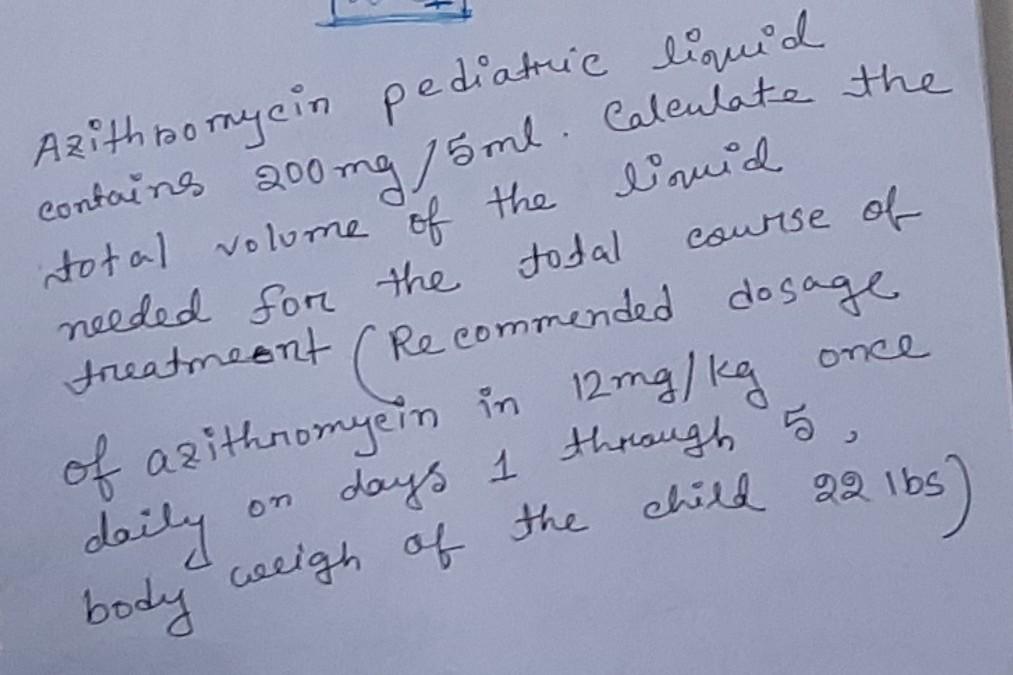 Azithromycin pediatric liquid
contains 200mg/5ml. Calculate the
total volume of the liquid
needed for the total course of
treatment (Recommended dosage
of azithromycin in 12mg/kg once
daily on days 1 through 5,
body weigh of the child 22 lbs)